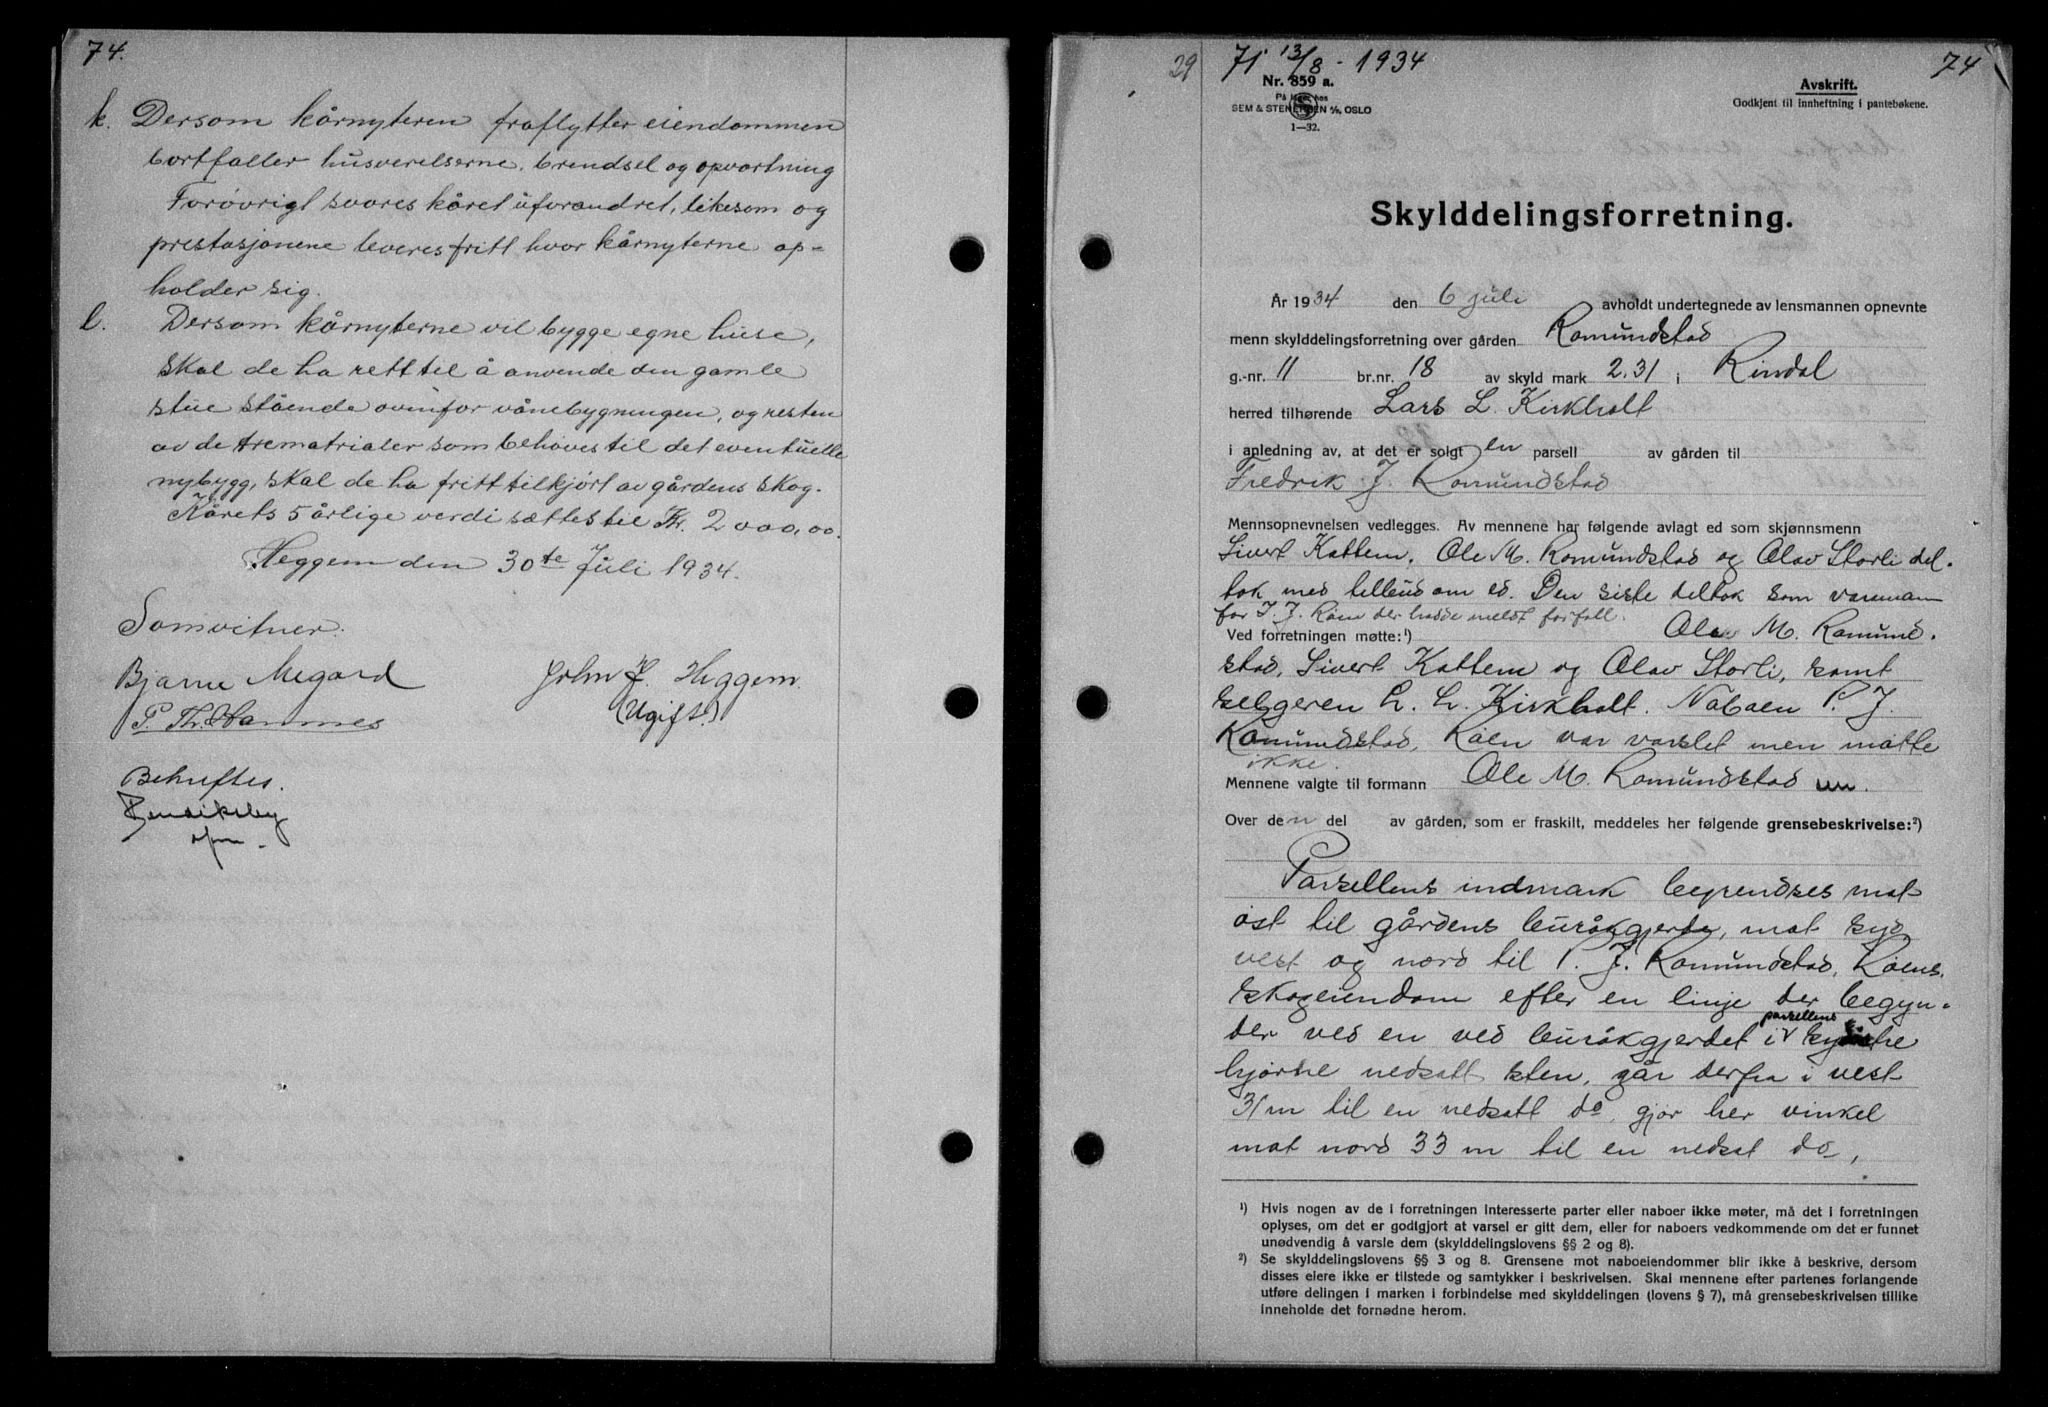 74.
k. Dersom kårnyteren fraflytter eiendommen
bortfaller husverelserne, brendsel og opvartning
Forøvrigt svares kåret uforandret, likesom og
prestasjonene leveres fritt hvor kårnyterne op-
holder sig.
l. Dersom kårnyterne vil bygge egne huse,
skal de ha rett til å anvende den gamle
stue stående ovenfor vånebygningen, og resten
av de trematrialer som behøves til det eventuelle
nybygg, skal de ha fritt tilkjørt av gårdens skog.
Kårets 5 årlige verdi sættes til Kr. 2000,00.
Heggem den 30te Juli 1934.
Som vitner.
Bjarne Megard
P. Th. Hammes
John J. Heggem
(Ugift.)
Bekreftes.
29 71 13/8 - 1934 74
Nr. 859 a.
På lager hos
SEM & STENERSEN A/S, OSLO
1—32.
Avskrift.
Godkjent til innheftning i pantebøkene.
Skylddelingsforretning.
År 1934 den 6 juli avholdt undertegnede av lensmannen opnevnte
menn skylddelingsforretning over gården Romundstad
g.-nr. 11 br.nr. 18 av skyld mark 2.31 i Rindal
herred tilhørende Lars L. Kirkholt
i anledning av, at det er solgt en parsell av gården til
Fredrik J. Romundstad
Mennsopnevnelsen vedlegges. Av mennene har følgende avlagt ed som skjønnsmenn
Sivert Kattem, Ole M. Romundstad og Olav Storli del-
tok med tilbud om ed. Den siste deltok som varamann
for J. J. Røen der hadde meldt forfall.
Ved forretningen møtte:¹) Ola M. Romund-
stad, Sivert Kattem og Olav Storli, samt
selgeren L. L. Kirkholt. Naboen P. J.
Romundstad, Røen var varslet men møtte
ikke.
Mennene valgte til formann Ole M. Romundstad
Over den del av gården, som er fraskilt, meddeles her følgende grensebeskrivelse:²)
Parsellens indmark begrendses mot
øst til gårdens buråkgjerde, mot syd,
vest og nord til P. J. Romundstad, Røens
skogeiendom efter en linje der begyn-
der ved en ved buråkgjerdet i parsellens sydøstre
hjørne nedsatt sten, går derfra i vest
31 m til en nedsatt do, gjør her vinkel
mot nord 33 m til en nedsat do,
¹) Hvis nogen av de i forretningen interesserte parter eller naboer ikke møter, må det i forretningen
oplyses, om det er godtgjort at varsel er gitt dem, eller for naboers vedkommende om det er funnet
unødvendig å varsle dem (skylddelingslovens §§ 2 og 8).
²) Se skylddelingslovens §§ 3 og 8. Grensene mot naboeiendommer blir ikke å beskrive, dersom
disses eiere ikke er tilstede og samtykker i beskrivelsen. Skal mennene efter partenes forlangende
utføre delingen i marken i forbindelse med skylddelingen (lovens § 7), må grensebeskrivelsen tillike
inneholde det fornødne herom.